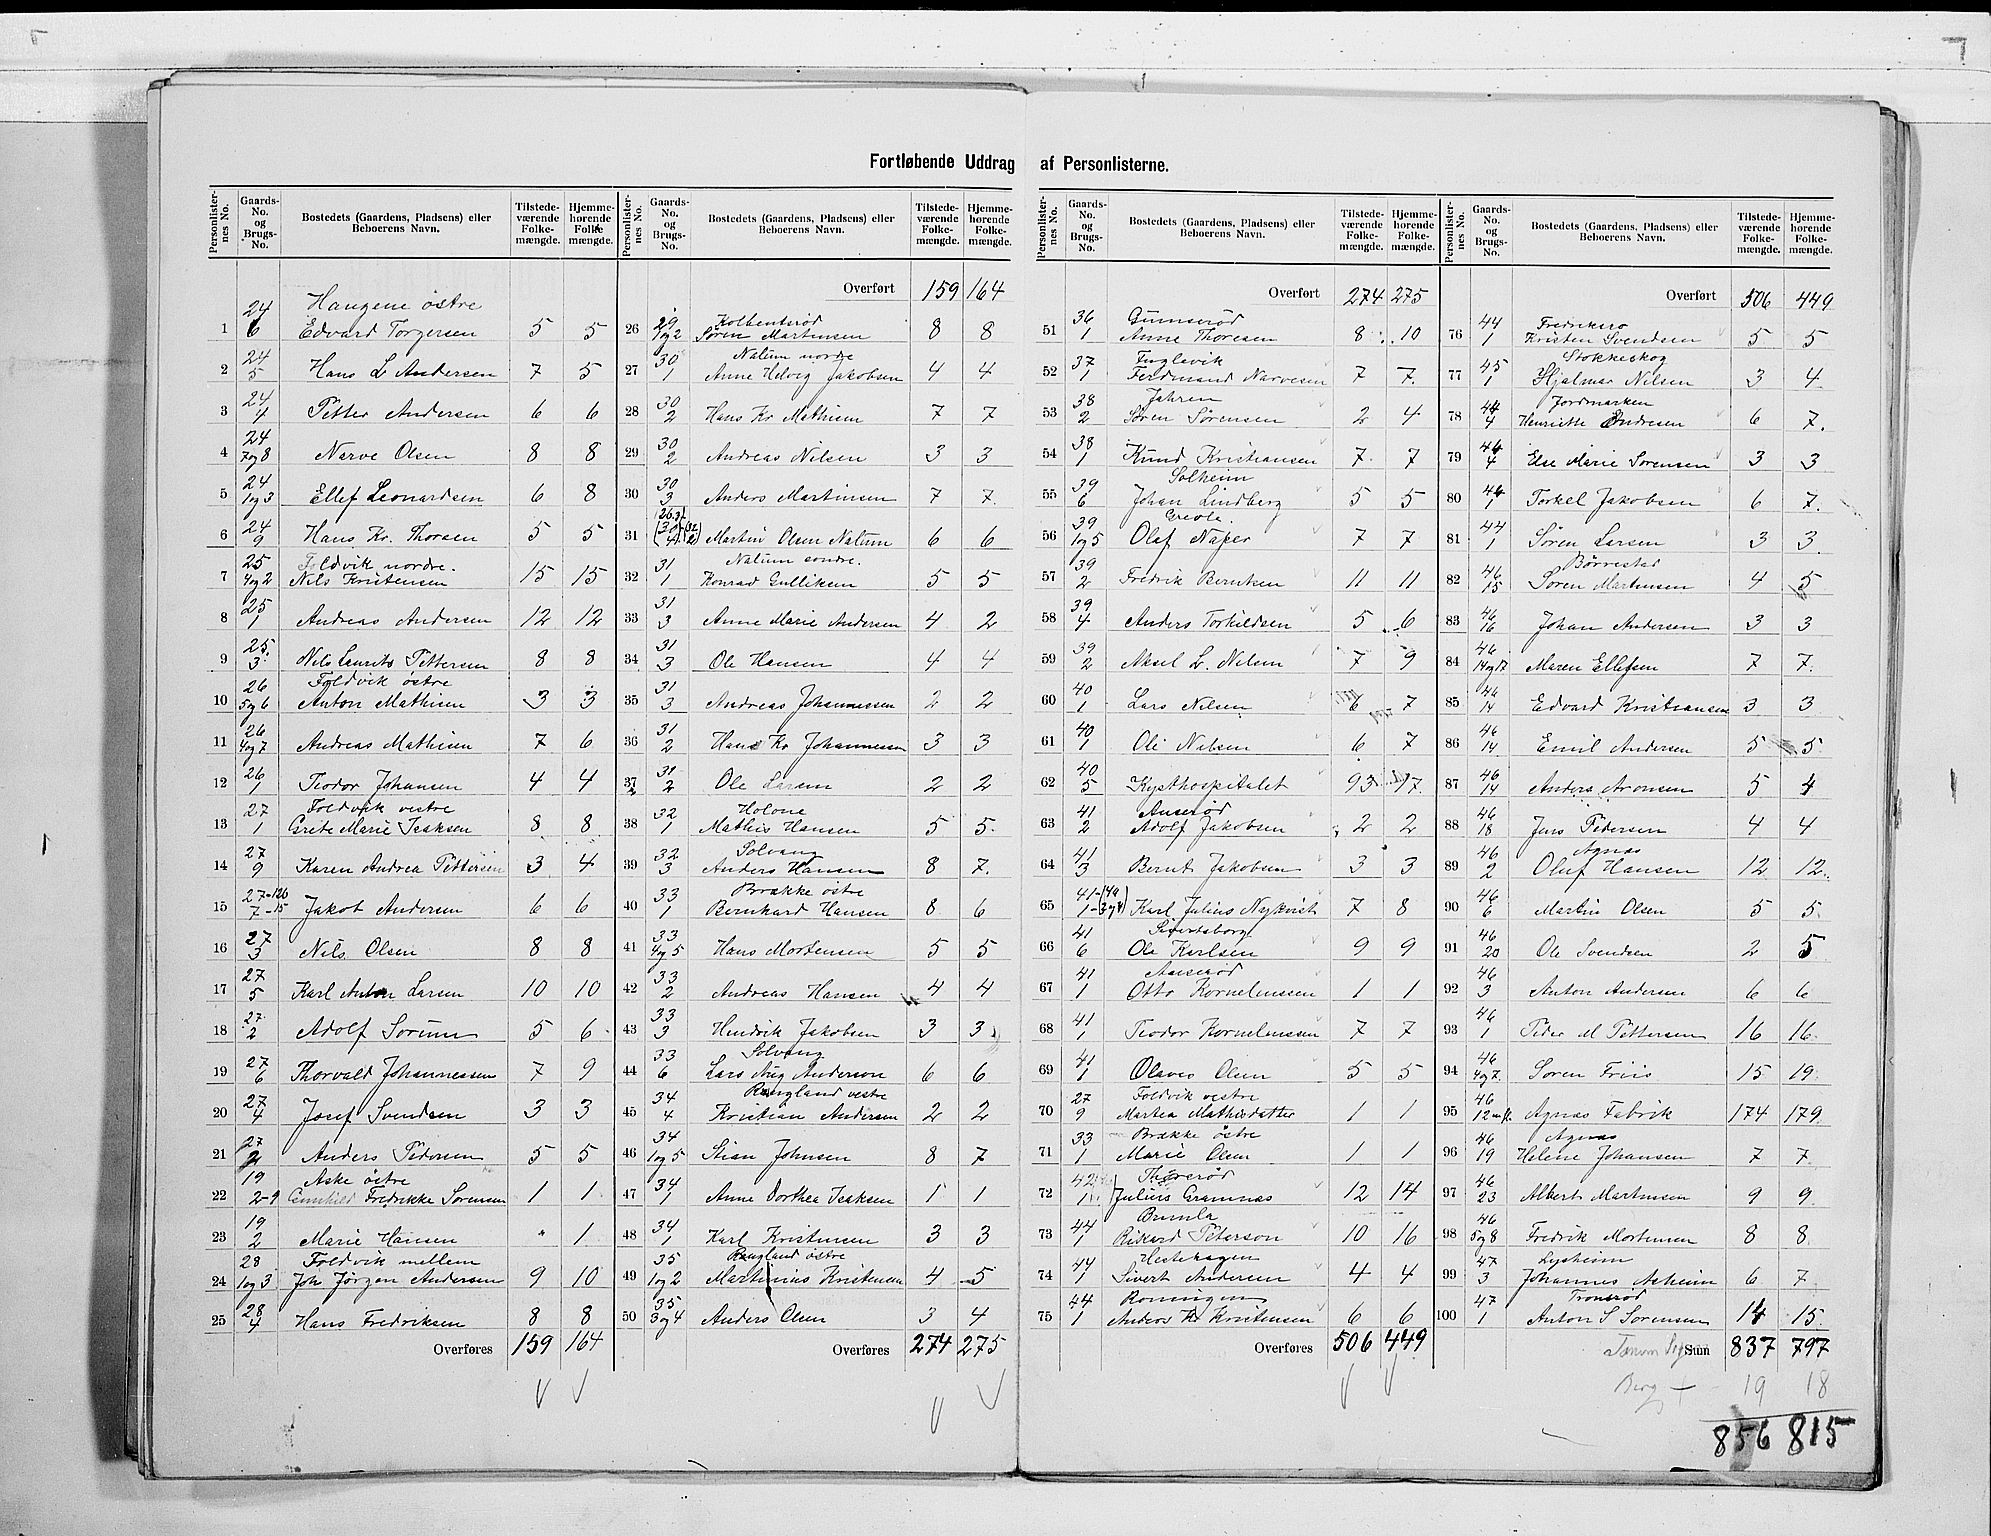 Fortløbende Uddrag af Personlisterne.
Personlister-nes No. Gaards-No. og Brugs-No. Bostedets (Gaardens, Pladsens) eller Beboerens Navn. Tilstede-værende Folke-mængde. Hjemme-hørende Folke-mængde.
24 Haugene östre
1 6 Edvard Torgersen 5 5
24
2 5 Hans L Andersen 7 5
24
3 4 Petter Andersen 6 6
24
4 7og8 Narve Olsen 8 8
24
5 1og3 Ellef Leonardsen 6 8
24
6 9 Hans Kr. Thorsen 5 5
25 Foldvik nordre.
7 4og2 Nils Kristensen 15 15
25
8 1 Andreas Andersen 12 12
25.
9 3 Nils Laurits Pettersen 8 8
26 Foldvik östre
10 5og6 Anton Mathisen 3 3
26
11 4og7 Andreas Mathisen 7 6
26
12 1 Teodor Johansen 4 4
27 Foldvik vestre
13 1 Grete Marie Isaksen 8 8
27
14 9 Karen Andrea Pettersen 3 4
27-126
15 7-15 Jakob Andersen 6 6
27
16 3 Nils Olsen 8 8
27
17 5 Karl Anton Larsen 10 10
27
18 2 Adolf Sorum 5 6
27
19 6 Thorvald Johannessen 7 9
27
20 4 Josef Svendsen 3 3
27
21 2 Anders Pedersen 5 5
19 Aske östre
22 2-9 Gunhild Fredrikke Sorensen 1 1
19
23 2 Marie Hansen " 1
28 Foldvik mellem
24 1og3 Joh Jörgen Andersen 9 10
28
25 4 Hans Fredriksen 8 8
Overføres 159 164
Personlister-nes No. Gaards-No. og Brugs-No. Bostedets (Gaardens, Pladsens) eller Beboerens Navn. Tilstede-værende Folke-mængde. Hjemme-hørende Folke-mængde.
Overført 159 164
29 Kolbensröd
26 1og2 Sören Martinsen 8 8
30 Nalum nordre
27 1 Anne Helvig Jakobsen 4 4
30
28 2 Hans Kr Mathisen 7 7
30
29 2 Andreas Nilsen 3 3
30
30 3 Anders Martinsen 7 7.
31 Martin Olsen Nalum 6 6
31 Nalum sondre.
32 1 Konrad Gulliksen 5 5
31
33 3 Anne Marie Andersen 4 2
31
34 3 Ole Hansen 4 4
31
35 3 Andreas Johannessen 2 2
31
36 2 Hans Kr Johannessen 3 3
31
37 2 Ole Larsen 2 2
32 Holone
38 1 Mathis Hansen 5 5.
32 Solvang
39 3 Anders Hansen 8 7.
33 Brække östre
40 1 Bernhard Hansen 8 6
33
41 4og5 Hans Mortensen 5 5
33
42 2 Andreas Hansen 4 4
33
43 3 Hendrik Jakobsen 3 3
33 Solvang
44 6 Lars Aug Anderson 6 6
34 Rangland vestre
45 4 Kristian Andersen 2 2
34
46 1og5 Stian Johnsen 8 7
34
47 1 Anne Dorthea Isaksen 1 1
34
48 1 Karl Kristensen 3 3
35 Rangland östre
49 1og2 Martinius Kristensen 4 5
35
50 3og4 Anders Olsen 3 4
Overføres 274 275
Personlister-nes No. Gaards-No. og Brugs-No. Bostedets (Gaardens, Pladsens) eller Beboerens Navn. Tilstede-værende Folke-mængde. Hjemme-hørende Folke-mængde.
Overført 274 275
36 Gunneröd
51 1 Anne Thoresen 8 10
37 Fuglevik
52 1 Ferdinand Narvesen 7 7.
38 Jahren
53 2 Sören Sørensen 2 4
38
54 1 Knud Kristiansen 7 7
39 Solheim
55 6 Johan Lindberg 5 5
39 Greole.
56 1og5 Olaf Naper 7 7
39
57 2 Fredrik Berntsen 11 11
39
58 4 Anders Torkildsen 5 6
39
59 2 Aksel L. Nilsen 7 9
40
60 1 Lars Nilsen 6 7
40
61 1 Ole Nalsen 6 7
40
62 5 Kysthospitalet 93 17.
41 Auseröd
63 2 Adolf Jakobsen 2 2
41
64 3 Bernt Jakobsen 3 3
65 Karl Julius Nykvist 7 8
41 Sivertsborg.
66 6 Ole Karlsen 9 9
41 Auseröd
67 1 Otto Korneliussen 1 1
41
68 1 Teodor Korneliussen 7 7
41
69 1 Olaves Olsen 5 5
27 Foldvik vestre
70 9 Martea Mathisdatter 1 1
33 Brække östre
71 1 Marie Olsen 1 1
42
72 1 Julius Gramnæs 12 14
44 Brunla
73 1 Rikard Peterson 10 16
44 Hestehagen
74 1 Sivert Andersen 4 4
44 Roningen
75 1 Anders Kr Kristensen 6 6
Overføres 506 449
Personlister-nes No. Gaards-No. og Brugs-No. Bostedets (Gaardens, Pladsens) eller Beboerens Navn. Tilstede-værende Folke-mængde. Hjemme-hørende Folke-mængde.
Overført 506 449
44 Fredriksro
76 1 Kristen Svendsen 5 5
45 Stokkeskog
77 1 Hjalmar Nilsen 3 4
44 Jordmarken
78 4 Henriette Andresen 6 7.
44
79 4 Else Marie Sorensen 3 3
44
80 1 Torkel Jakobsen 6 7.
44
81 1 Sören Larsen 3 3
46 Börrestad
82 15 Sören Martinsen 4 5
46
83 16 Johan Andersen 3 3
46
84 14og17 Maren Ellefsen 7 7.
46
85 14 Edvard Kristiansen 3 3
46
86 14 Emil Andersen 5 5
46
87 14 Anders Aronsen 5 4
46
88 18 Jens Pedersen 4 4
46 Agnæs
89 2 Oluf Hansen 12 12.
46
90 6 Martin Olsen 5 5
46
91 20 Ole Svendsen 2 5
46
92 3 Anton Andersen 6 6
46
93 1 Peder M Pettersen 16 16.
46
94 4og7. Soren Friis 15 19.
46
95 12 Agnæs Fabrik 174 179.
46 Agnæs
96 19 Helene Johansen 7 7.
46
97 23 Albert Martinsen 9 9.
46
98 5og8 Fredrik Mortensen 8 8.
47 Lysheim
99 3 Johannes Asheim 6 7
47 Tronsröd
100 1 Anton S Sorensen 14 15.
Tanum Sogn Sum 837 797
Berg + 19 18
856 815